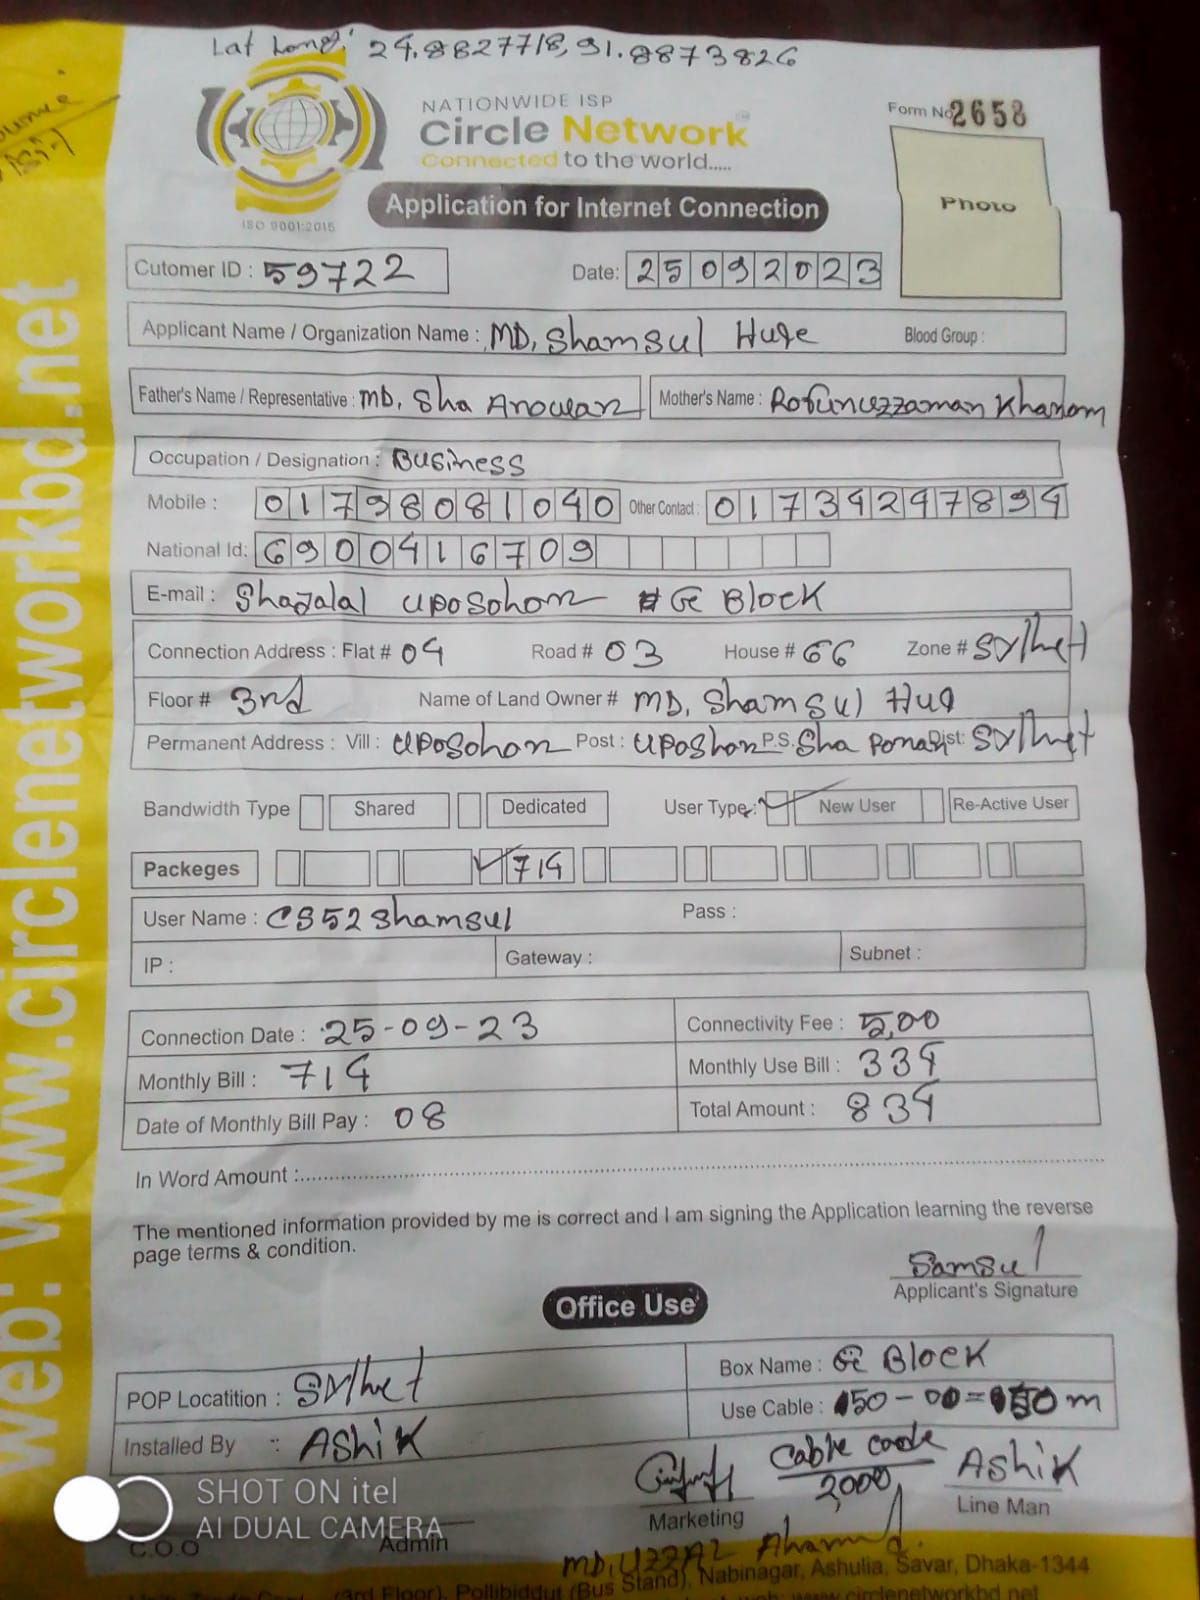 Lat Long: 24.8827718, 91.8873826
NATIONWIDE ISP
Circle Network
Connected to the world.....
ISO 9001:2015
Form No 2658
Photo
Application for Internet Connection
Cutomer ID : 59722 Date: 25092023
Applicant Name / Organization Name : MD, Shamsul Huqe Blood Group :
Father's Name / Representative : md. Sha Anowar Mother's Name : Rofunuzzaman Khanom
Occupation / Designation : Business
Mobile : 01798081040 Other Contact : 01734247894
National Id: 6900416709
E-mail : Shajalal uposohon # G BLOCK
Connection Address : Flat # 04 Road # 03 House # 66 Zone # Sylhet
Floor # 3rd Name of Land Owner # MD, Shamsul Huq
Permanent Address : Vill : uposohon Post : uposhon P.S. Sha Poran Dist: Sylhet
Bandwidth Type Shared Dedicated User Type : New User Re-Active User
Packeges 714
User Name : CS52shamsul Pass :
IP : Gateway : Subnet :
Connection Date : 25-09-23 Connectivity Fee : 5,00
Monthly Bill : 714 Monthly Use Bill : 334
Date of Monthly Bill Pay : 08 Total Amount : 834
In Word Amount :
The mentioned information provided by me is correct and I am signing the Application learning the reverse
page terms & condition.
Samsul
Applicant's Signature
Office Use
POP Locatition : Sylhet Box Name : G BLOCK
Installed By : Ashik Use Cable : 150-00=150m
Cable code
2000
Ashik
Marketing Line Man
C.O.O Admin
MD. UZZAL Ahamed
(3rd Floor), Pollibiddut (Bus Stand), Nabinagar, Ashulia, Savar, Dhaka-1344
www.circlenetworkbd.net
web: www.circlenetworkbd.net
SHOT ON itel
AI DUAL CAMERA